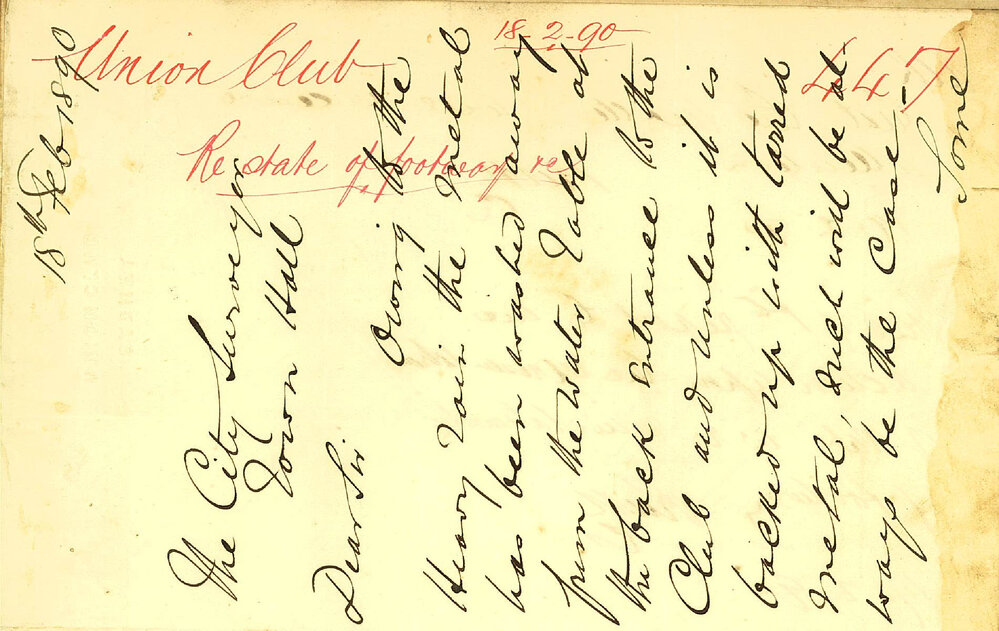 Union Club
18-2-90
447
Re state of footway re
18th Feb 1890
The City Surveyor
Town Hall
Dear Sir
Owing to the
Heavy rain the metal
has been washed away
from the water table at
the back entrance to the
Club and unless it is
backed up with tarred
metal, such will be al-
ways be the case-
Some